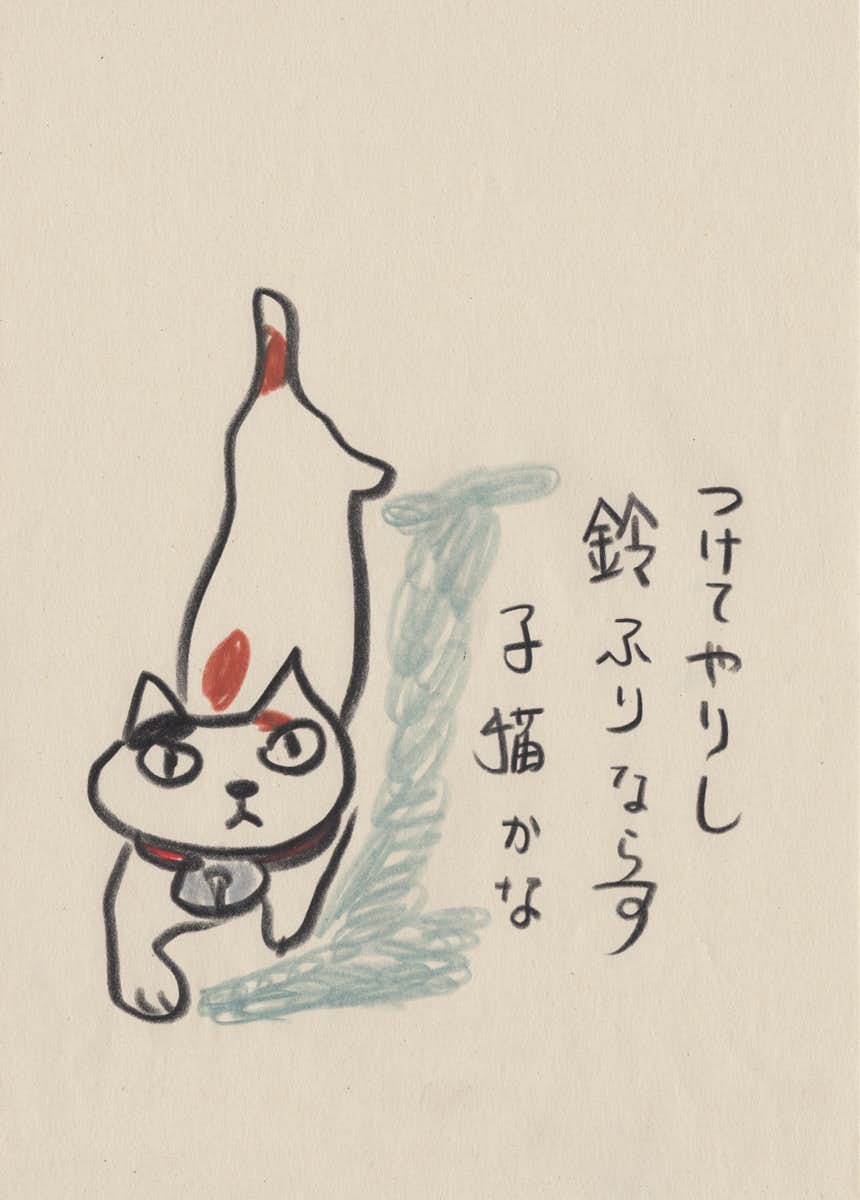 つけてやりし
鈴ふりならす
子猫かな